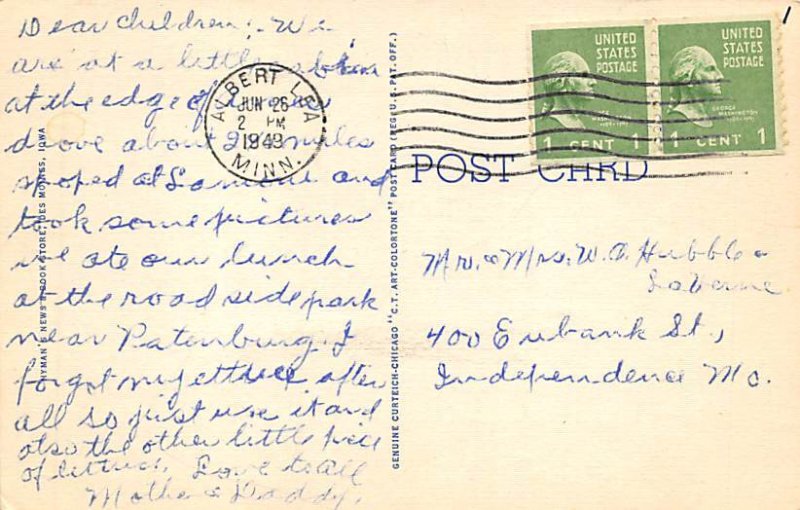 Dear Children: We
are at a little
at the edge of
drove about 2 miles
stoped at Lamoni and
took some pictures
we ate our lunch
at the road side park
near Patenburg. I
forgot my lettuce after
all so just use it and
also the other little piece
of lettuce. Love to all
Mother & Daddy.
ALBERT LEA
JUN 26
2 PM
1949
MINN.
UNITED
STATES
POSTAGE
GEORGE
WASHINGTON
1 CENT 1
UNITED
STATES
POSTAGE
GEORGE
WASHINGTON
1 CENT 1
POST CARD
Mr. & Mrs. W. A. Hubble &
LaVerne
400 Eubank St.,
Independence Mo.
HYMAN'S NEWS & BOOK STORE, DES MOINES, IOWA
GENUINE CURTEICH-CHICAGO "C.T. ART-COLORTONE" POST CARD (REG. U.S. PAT. OFF.)